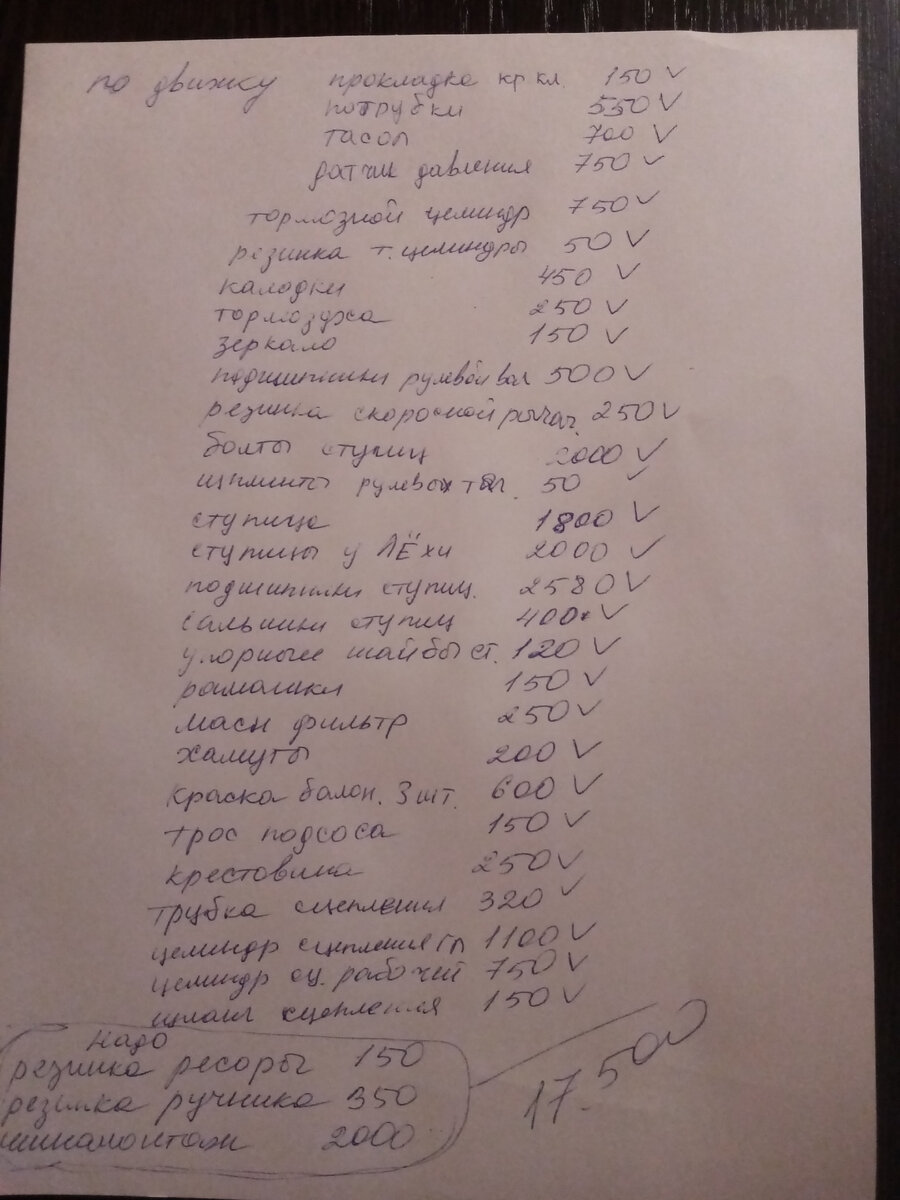 по движку прокладка кр кл. 150 V
потрубки 550 V
тасол 700 V
датчик давления 750 V
тормозной цеминдр 750 V
резинка т. цеминдры 50 V
каладки 450 V
тормозуха 250 V
зеркало 150 V
подшипники рулевой вал 500 V
резинка скоросной рычаг. 250 V
болты ступиц 2000 V
щплинты рулевых тяг. 50 V
ступица 1800 V
ступицы у ЛЁХи 2000 V
подшипники ступиц. 2580 V
сальники ступиц 400 V
упорныее шайбы ст. 120 V
рамашки 150 V
масн фильтр 250 V
хамуты 200 V
краска балон. 3 шт. 600 V
трос подсоса 150 V
крестовина 250 V
трубка сцепления 320 V
цеминдр сцепления гл 1100 V
цеминдр сц. рабочий 750 V
щланг сцепления 150 V
надо
резинка ресоры 150
резинка ручника 350
шинамонтаж 2000
17.500